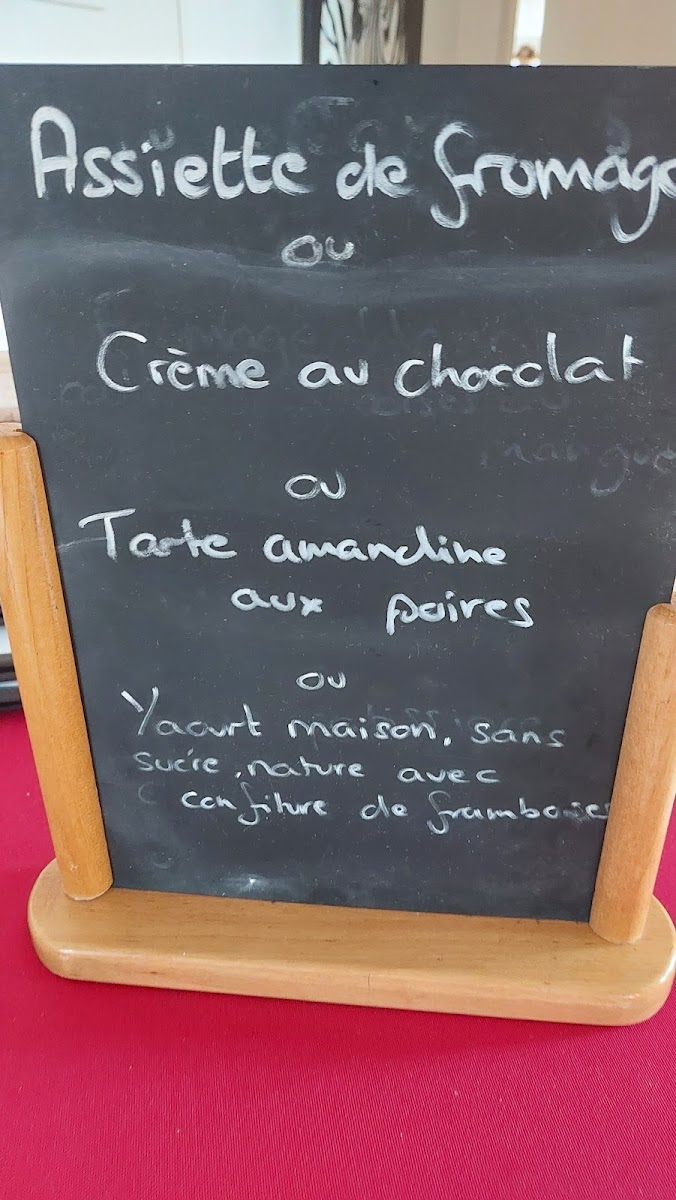 Assiette de fromage
ou
Crème au chocolat
ou
Tarte amandine
aux poires
ou
Yaourt maison, sans
sucre, nature avec
confiture de framboises